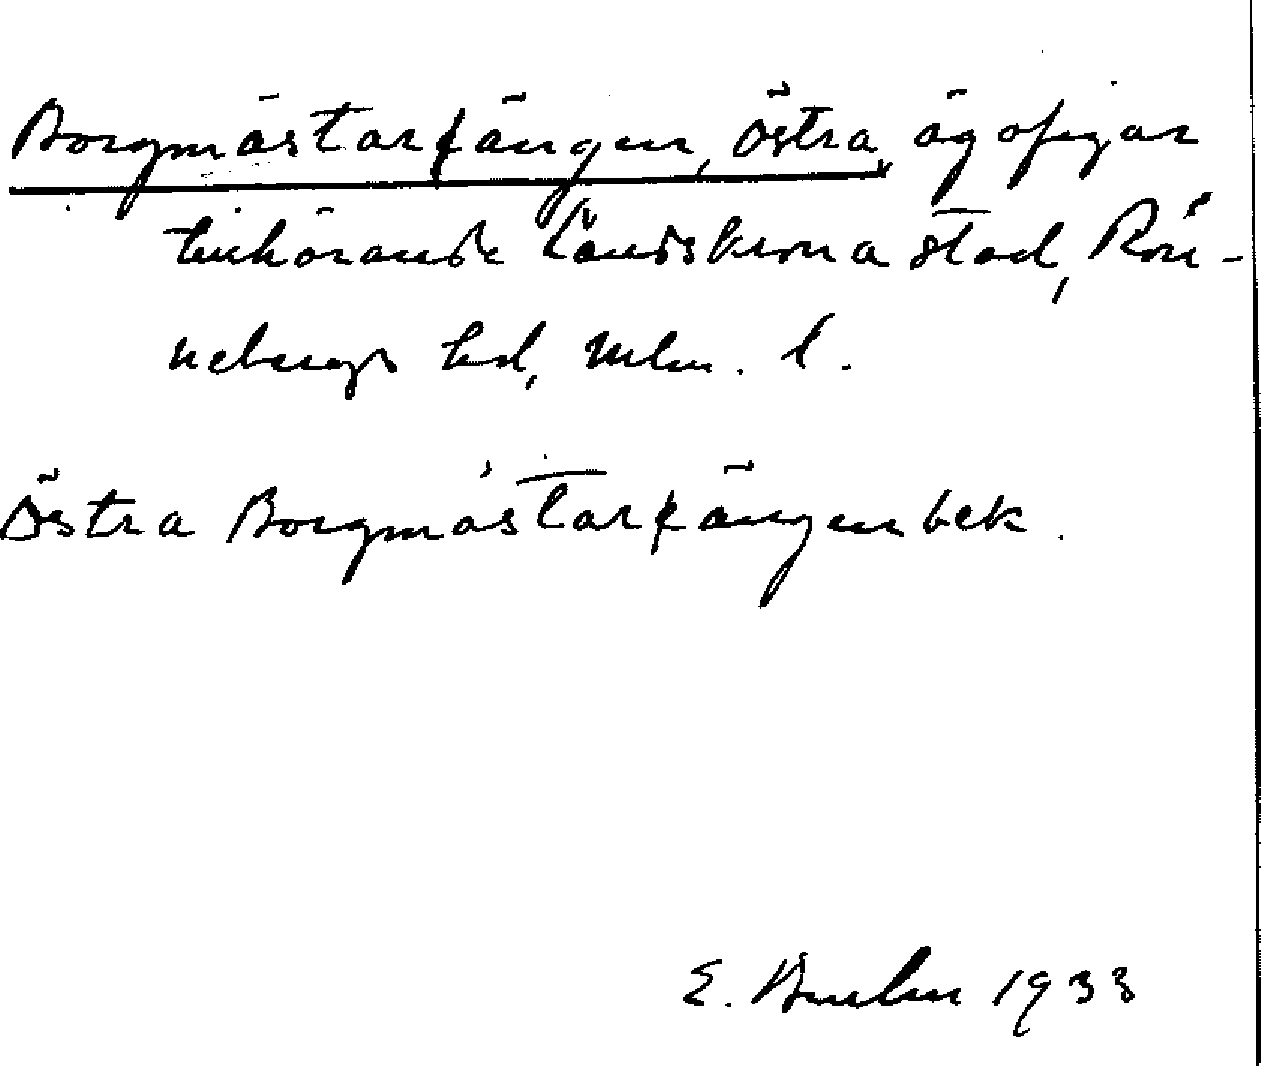 Borgmästarfängen, Östra, ägofigur
tillhörande Landskrona stad, Rön-
nebergs hd, Mlm. l.
Östra Borgmästarfängen bek.
E. 1933